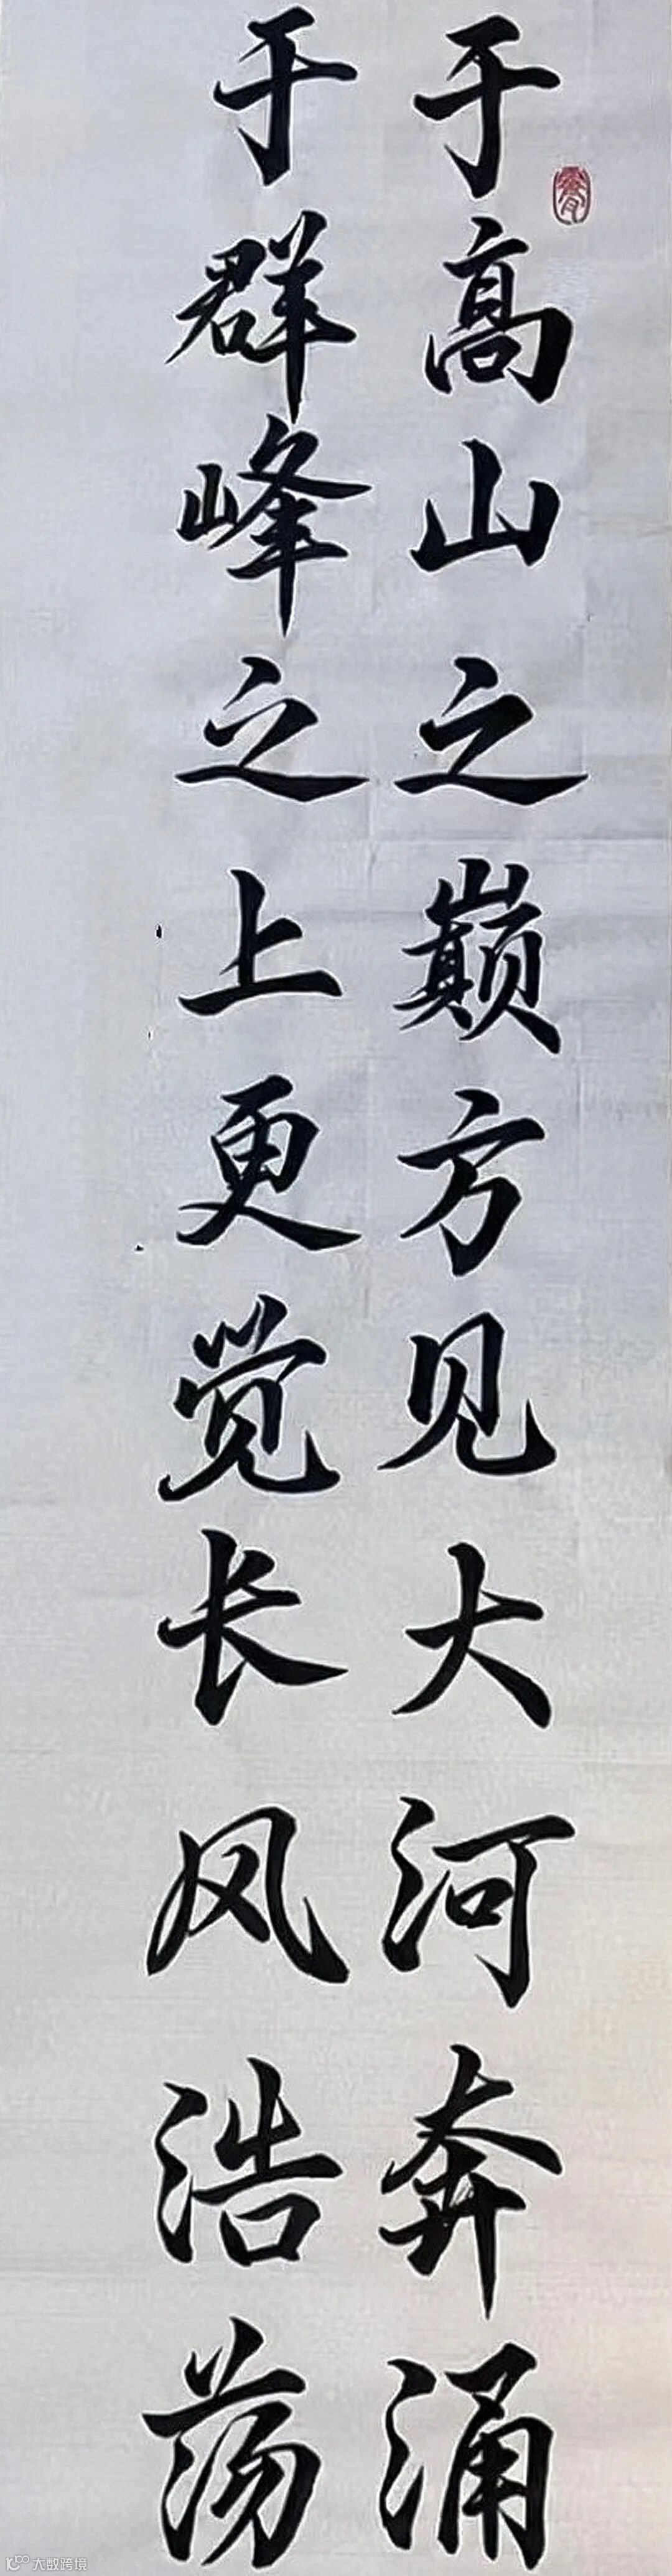 于高山之巅方见大河奔涌
于群峰之上更觉长风浩荡
大数跨境